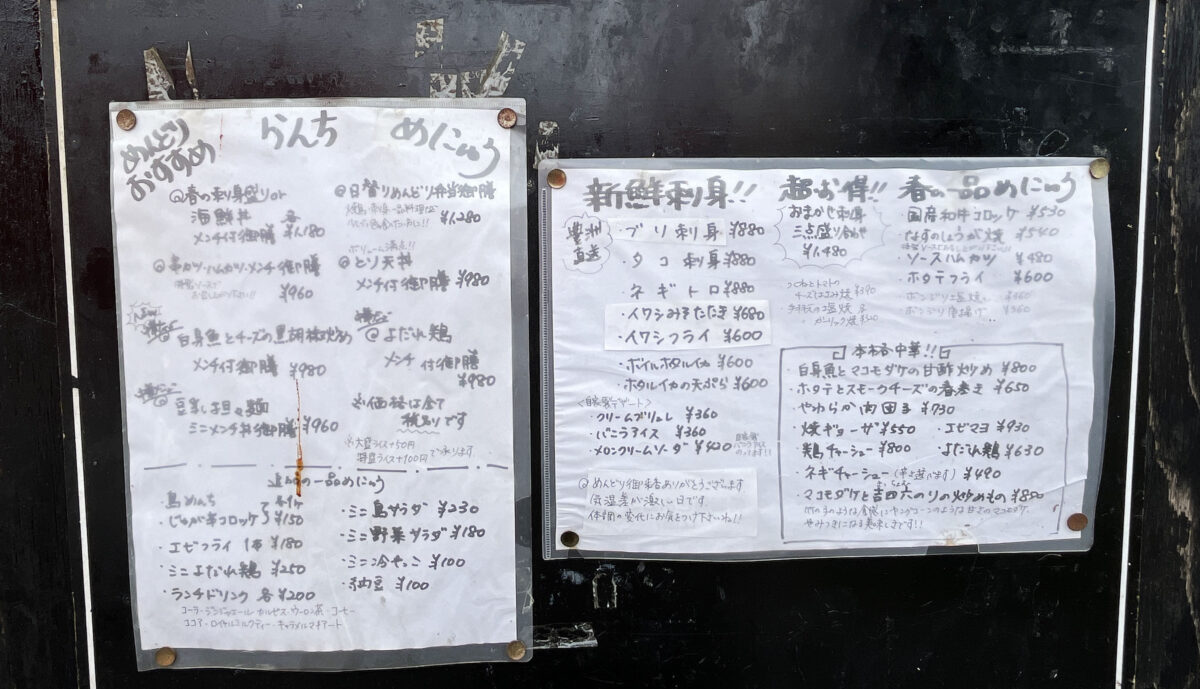 めんどり
おすすめ
らんち めにゅう
@春の刺身盛りor
海鮮丼 各
メンチ付御膳 ¥1,180
@日替りめんどり弁当御膳
¥1,280
@串カツ・ハムカツ・メンチ御膳
特製ソースで
¥960
ボリューム満点!!
@とり天丼
メンチ付御膳 ¥980
白身魚とチーズの黒胡椒炒め
メンチ付御膳 ¥980
@よだれ鶏
メンチ付御膳
¥980
豆乳担々麺
ミニメンチ丼御膳 ¥960
※価格は全て
税別りです
※大盛ライス+50円
特盛ライス+100円で承ります
追加の一品めにゅう
・鳥めんち
・じゃが芋コロッケ ¥150
・エビフライ 1本 ¥180
・ミニよだれ鶏 ¥250
・ランチドリンク 各¥200
コーラ・ジンジャエール・カルピス・ウーロン茶・コーヒー
ココア・ロイヤルミルクティー・キャラメルマキアート
・ミニ鳥サラダ ¥230
・ミニ野菜サラダ ¥180
・ミニ冷やっこ ¥100
・納豆 ¥100
新鮮刺身!!
豊洲
直送
・ブリ刺身 ¥880
・タコ刺身 ¥880
・ネギトロ ¥880
・イワシみそたたき ¥680
・イワシフライ ¥600
・ボイルホタルイカ ¥600
・ホタルイカの天ぷら ¥600
<自家製デザート>
・クリームブリュレ ¥360
・バニラアイス ¥360
・メロンクリームソーダ ¥420
@めんどり御来店ありがとうございます
気温差が激しい日です
体調の変化にお気をつけ下さいね!!
超お得!!
おまかせ刺身
三点盛り合わせ
¥1,480
・つくねとトマトの
チーズはさみ焼 ¥390
ガーリック焼 ¥320
春の一品めにゅう
・国産和牛コロッケ ¥530
・なすのしょうが焼 ¥540
・ソースハムカツ ¥480
・ホタテフライ ¥600
・ボンジリ塩焼 ¥360
・ボンジリ唐揚げ ¥360
本格中華!!
・白身魚とマコモダケの甘酢炒め ¥800
・ホタテとスモークチーズの春巻き ¥650
・やわらか肉団子 ¥730
・焼ギョーザ ¥550 ・エビマヨ ¥930
・鶏チャーシュー ¥800 ・よだれ鶏 ¥630
・ネギチャーシュー(辛さ選べます) ¥490
・マコモダケと吉田六のりの炒めもの ¥880
竹の子のような食感にヤングコーンのような甘さのマコモダケ。
やみつきになる美味しさです!!